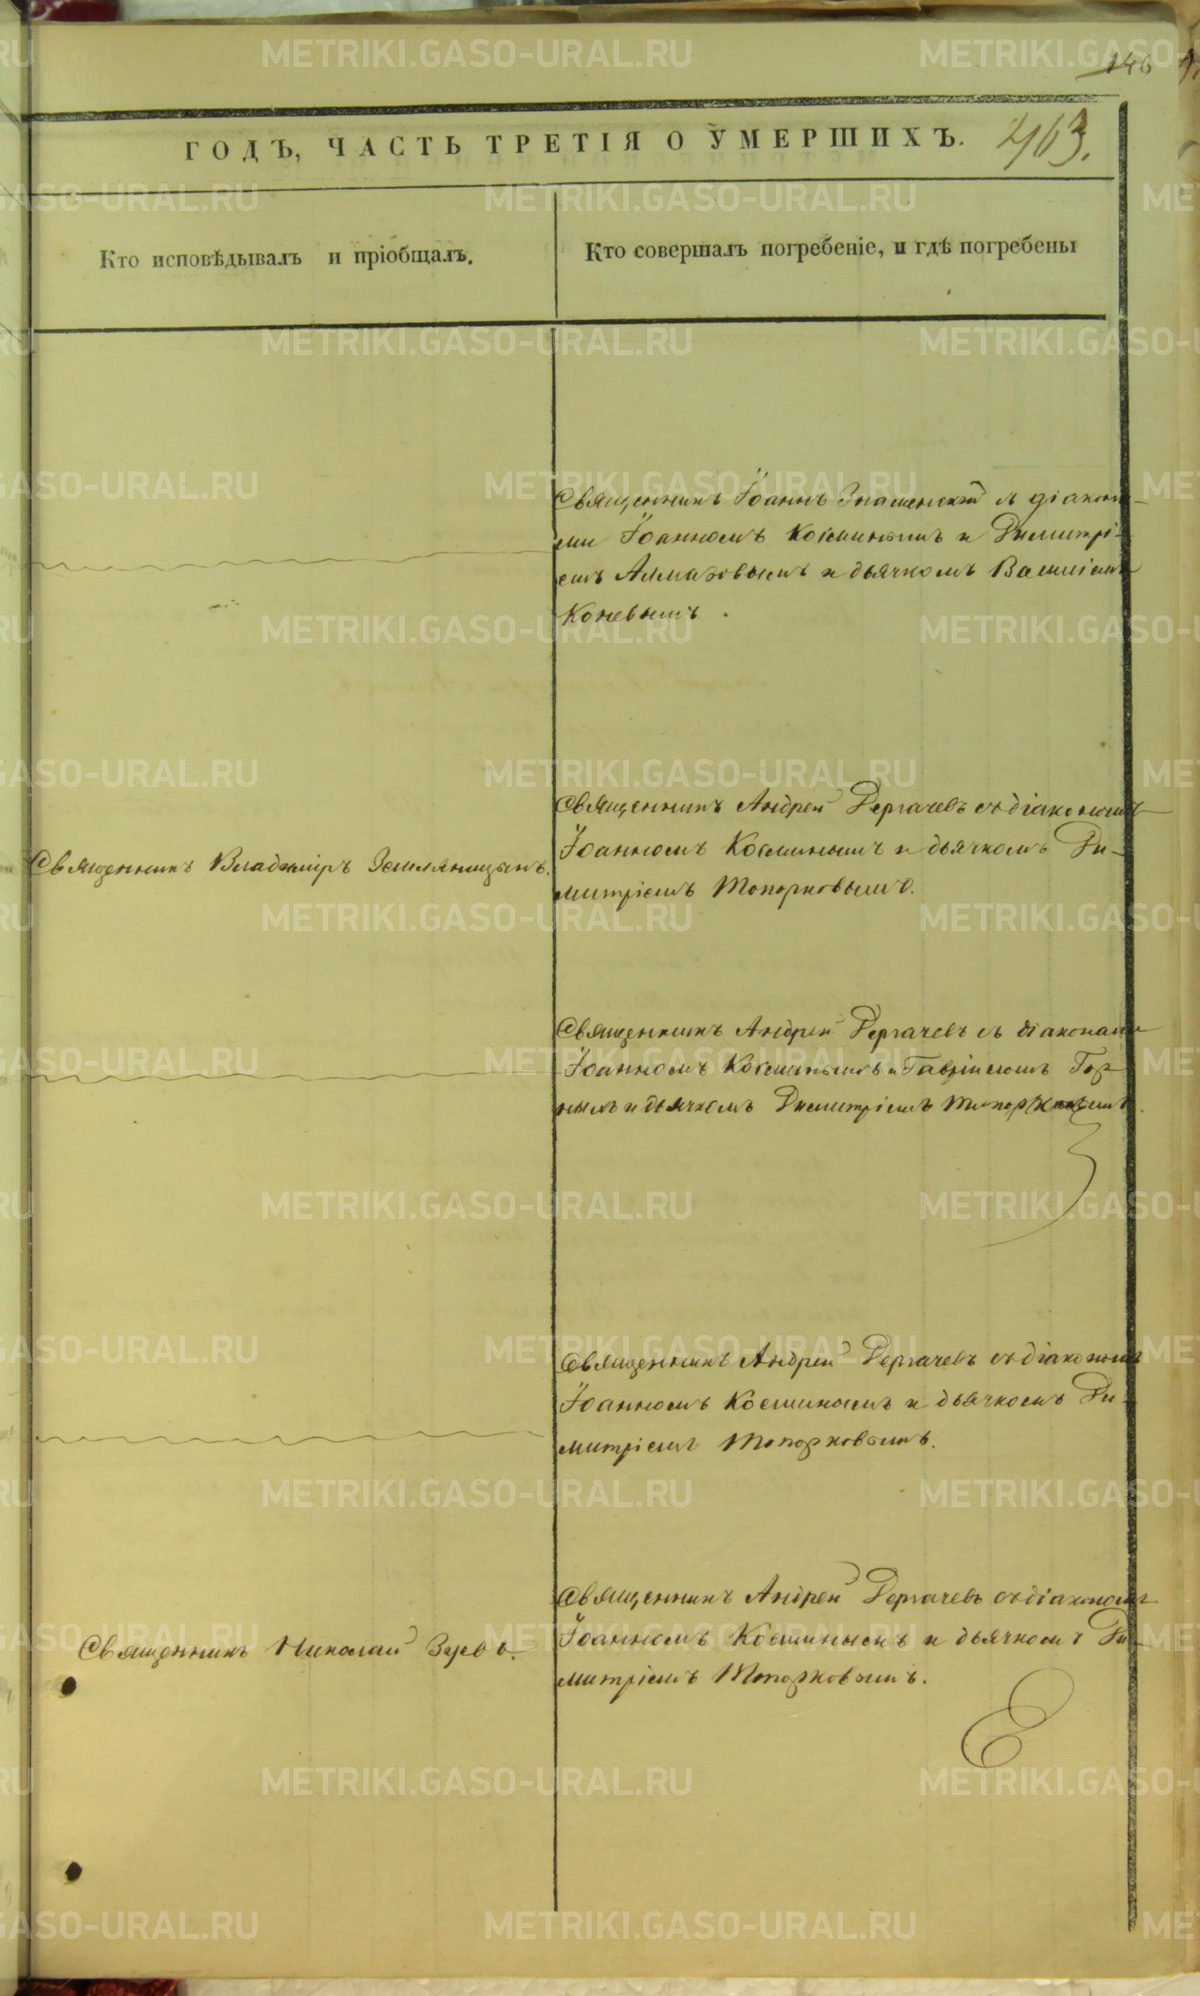 146
ГОДЪ, ЧАСТЬ ТРЕТІЯ О УМЕРШИХЪ. 463.
Кто исповѣдывалъ и пріобщалъ.
Кто совершалъ погребеніе, и гдѣ погребены
Священникъ Іоаннъ Знаменскій съ діакона-
ми Іоанномъ Косминымъ и Димитрі-
емъ Алмазовымъ и дьячкомъ Василіемъ
Коневымъ.
Священникъ Владиміръ Земляницынъ.
Священникъ Андрей Дергачевъ съ діакономъ
Іоанномъ Косминымъ и дьячкомъ Ди-
митріемъ Топорковымъ.
Священникъ Андрей Дергачевъ съ діаконами
Іоанномъ Косминымъ и Гавріиломъ Гор
нымъ и дьячкомъ Димитріемъ Топорковымъ.
Священникъ Андрей Дергачевъ съ діакономъ
Іоанномъ Косминымъ и дьячкомъ Ди-
митріемъ Топорковымъ.
Священникъ Николай Зубовъ.
Священникъ Андрей Дергачевъ съ діакономъ
Іоанномъ Косминымъ и дьячкомъ Ди-
митріемъ Топорковымъ.
METRIKI.GASO-URAL.RU